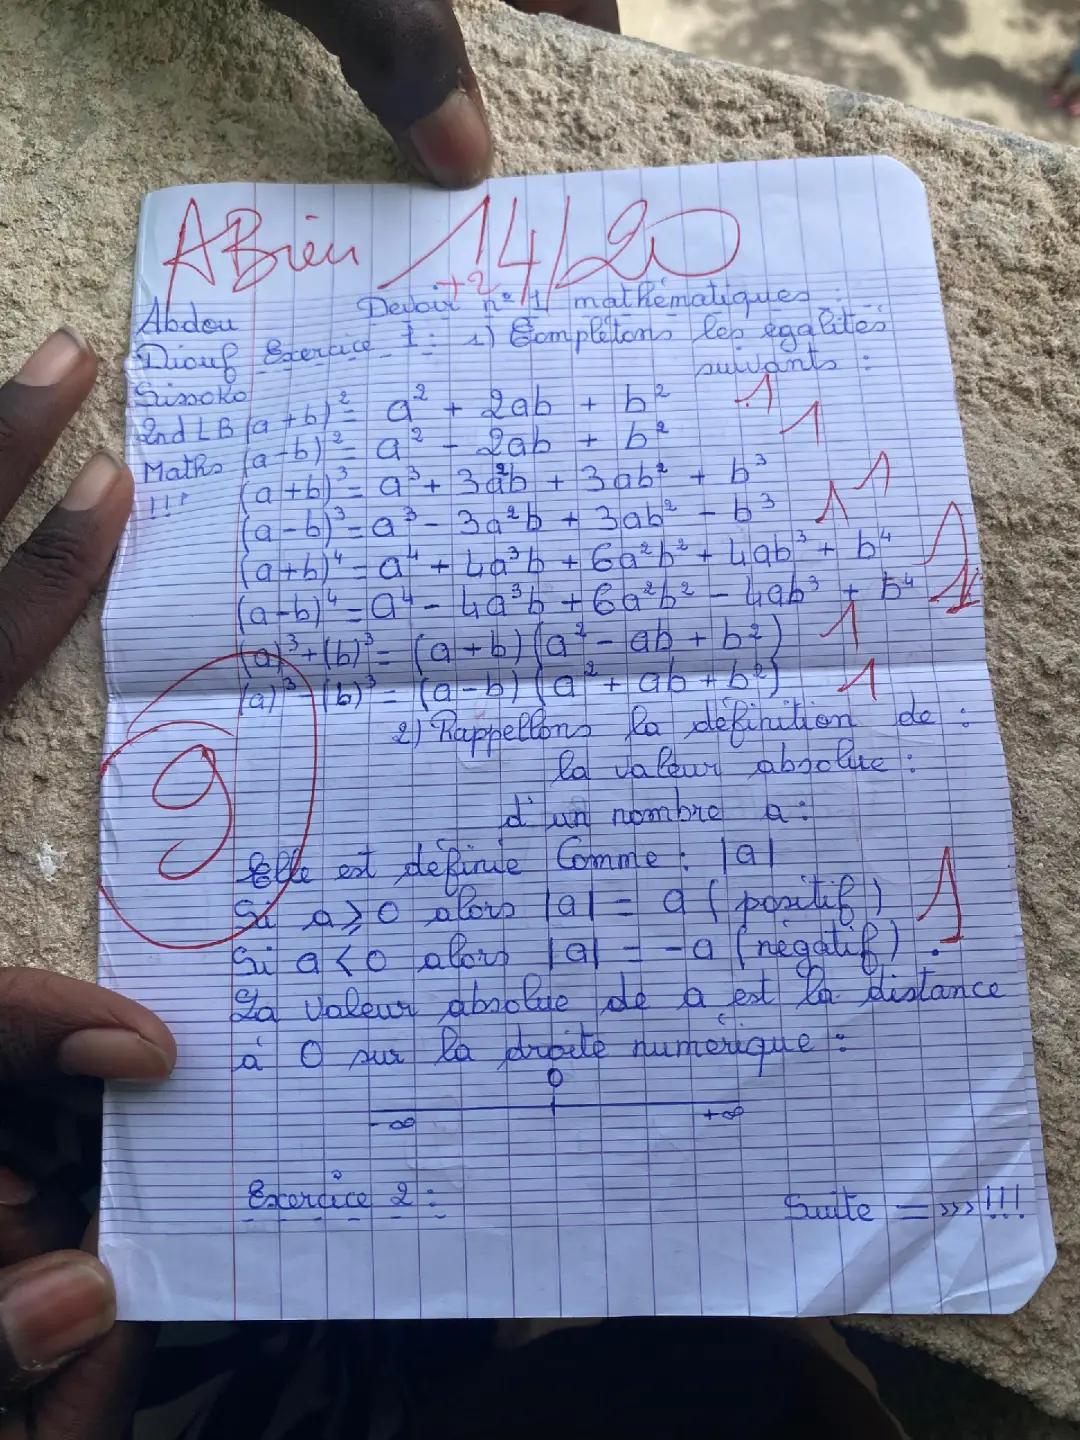 ABien 14/20
+2
Devoir n° 1 mathématiques :
Abdou
Diouf
Sissoko
2nd LB
Maths
!!!
Exercice I : 1) Complétons les égalités
suivants :
(a+b)² = a² + 2ab + b² 1
(a-b)² = a² - 2ab + b² 1
(a+b)³ = a³ + 3a²b + 3ab² + b³ 1
(a-b)³ = a³ - 3a²b + 3ab² - b³ 1
(a+b)⁴ = a⁴ + 4a³b + 6a²b² + 4ab³ + b⁴ 1
(a-b)⁴ = a⁴ - 4a³b + 6a²b² - 4ab³ + b⁴ 1
(a)³+(b)³ = (a+b) (a² - ab + b²) 1
(a)³-(b)³ = (a-b) (a² + ab + b²) 1
9
2) Rappellons la définition de :
la valeur absolue :
d'un nombre a :
Elle est définie Comme : |a|
Si a ⩾ 0 alors |a| = a (positif) 1
Si a < 0 alors |a| = -a (négatif).
La valeur absolue de a est la distance
à 0 sur la droite numérique :
0
-∞ +∞
Exercice 2 :
Suite = >>> !!!